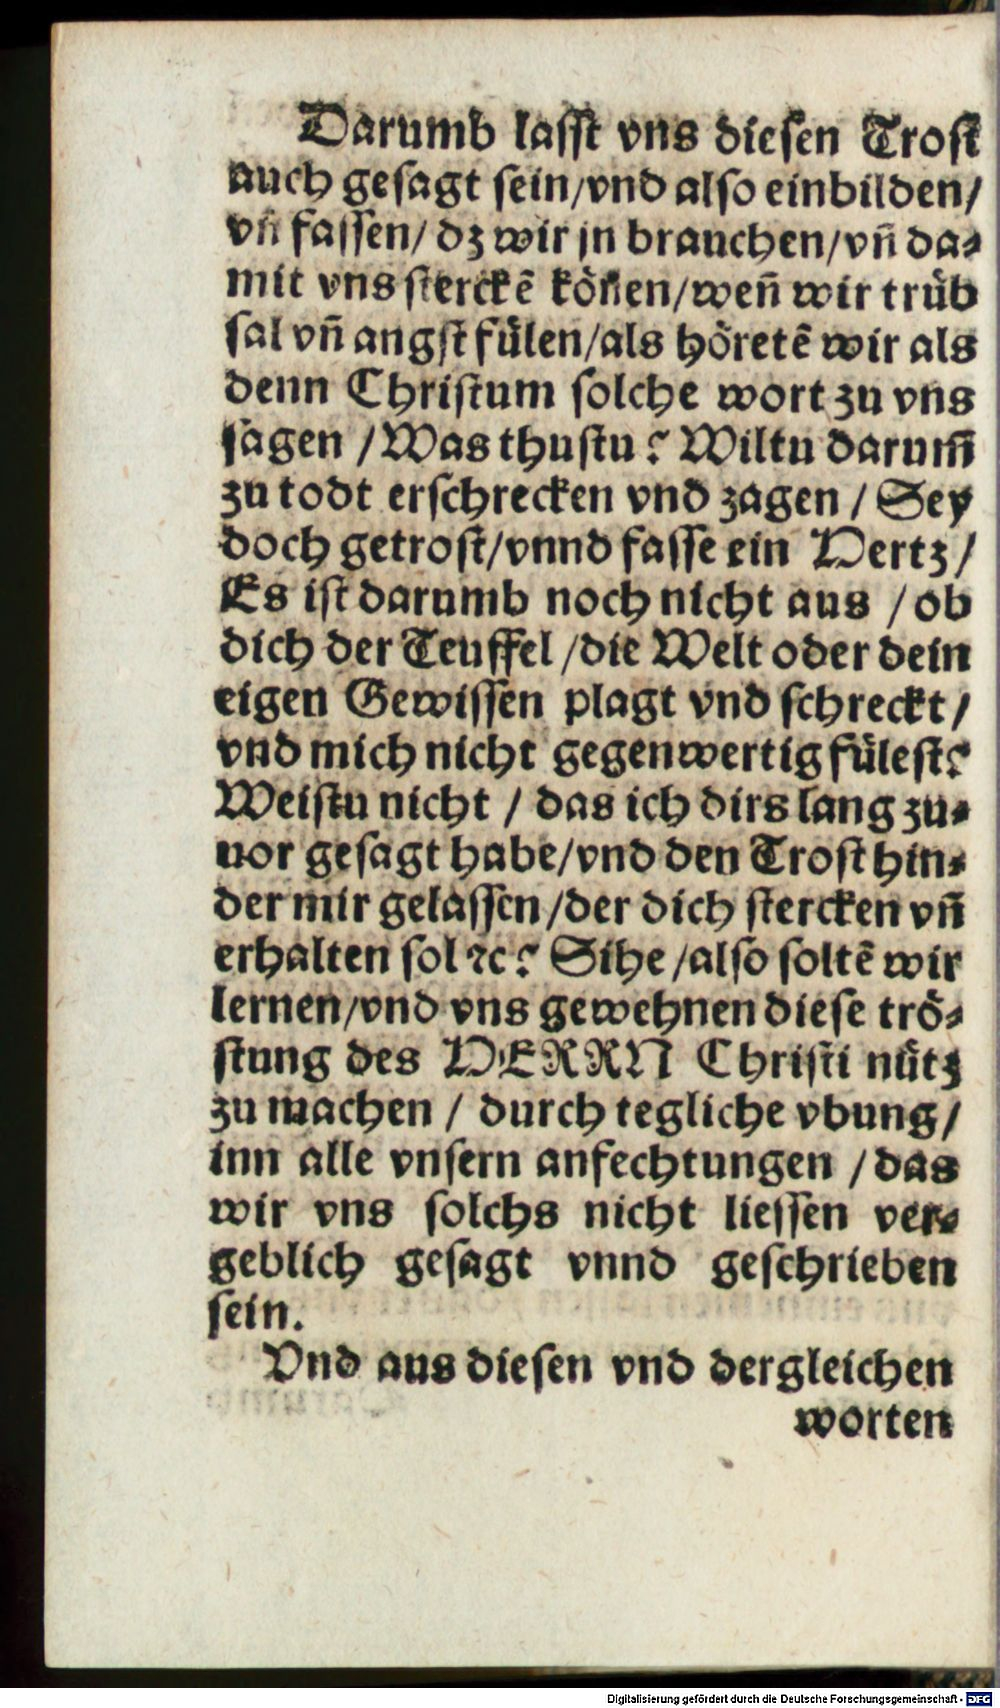 Darumb lasst vns diesen Trost
auch gesagt sein/vnd also einbilden/
vn̄ fassen/ dz wir jn brauchen/vn̄ da⸗
mit vns sterckē kön̄en/wen̄ wir trüb
sal vn̄ angst fülen/als höretē wir als
denn Christum solche wort zu vns
sagen /Was thustu? Wiltu darum̄
zu todt erschrecken vnd zagen / Sey
doch getrost/vnnd fasse ein Hertz /
Es ist darumb noch nicht aus /ob
dich der Teuffel /die Welt oder dein
eigen Gewissen plagt vnd schreckt /
vnd mich nicht gegenwertig fülest?
Weistu nicht / das ich dirs lang zu⸗
uor gesagt habe/vnd den Trost hin⸗
der mir gelassen /der dich stercken vn̄
erhalten sol ꝛc? Sihe /also soltē wir
lernen/vnd vns gewehnen diese trö⸗
stung des HERRN Christi nütz
zu machen / durch tegliche vbung/
inn alle vnsern anfechtungen /das
wir vns solchs nicht liessen ver⸗
geblich gesagt vnnd geschrieben
sein.
Vnd aus diesen vnd dergleichen
worten
Digitalisierung gefördert durch die Deutsche Forschungsgemeinschaft - DFG